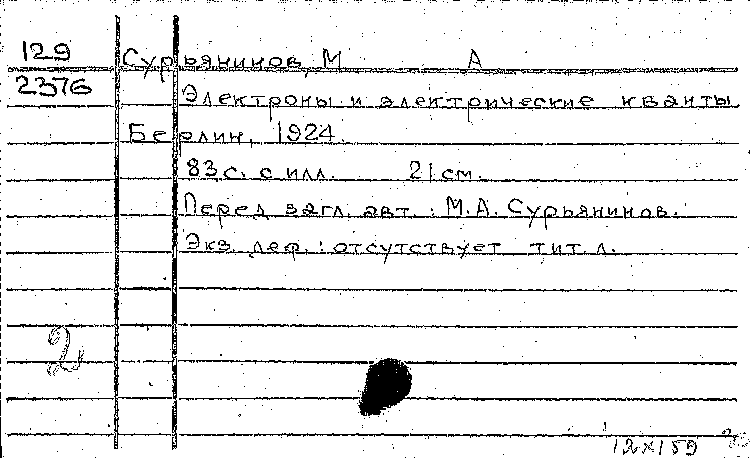 129
2376
Сурьянинов, М А
Электроны и электрические кванты
Берлин, 1924.
83 с. с илл. 21 см.
Перед загл. авт.: М.А. Сурьянинов.
Экз. деф.: отсутствует тит. л.
2
12x159